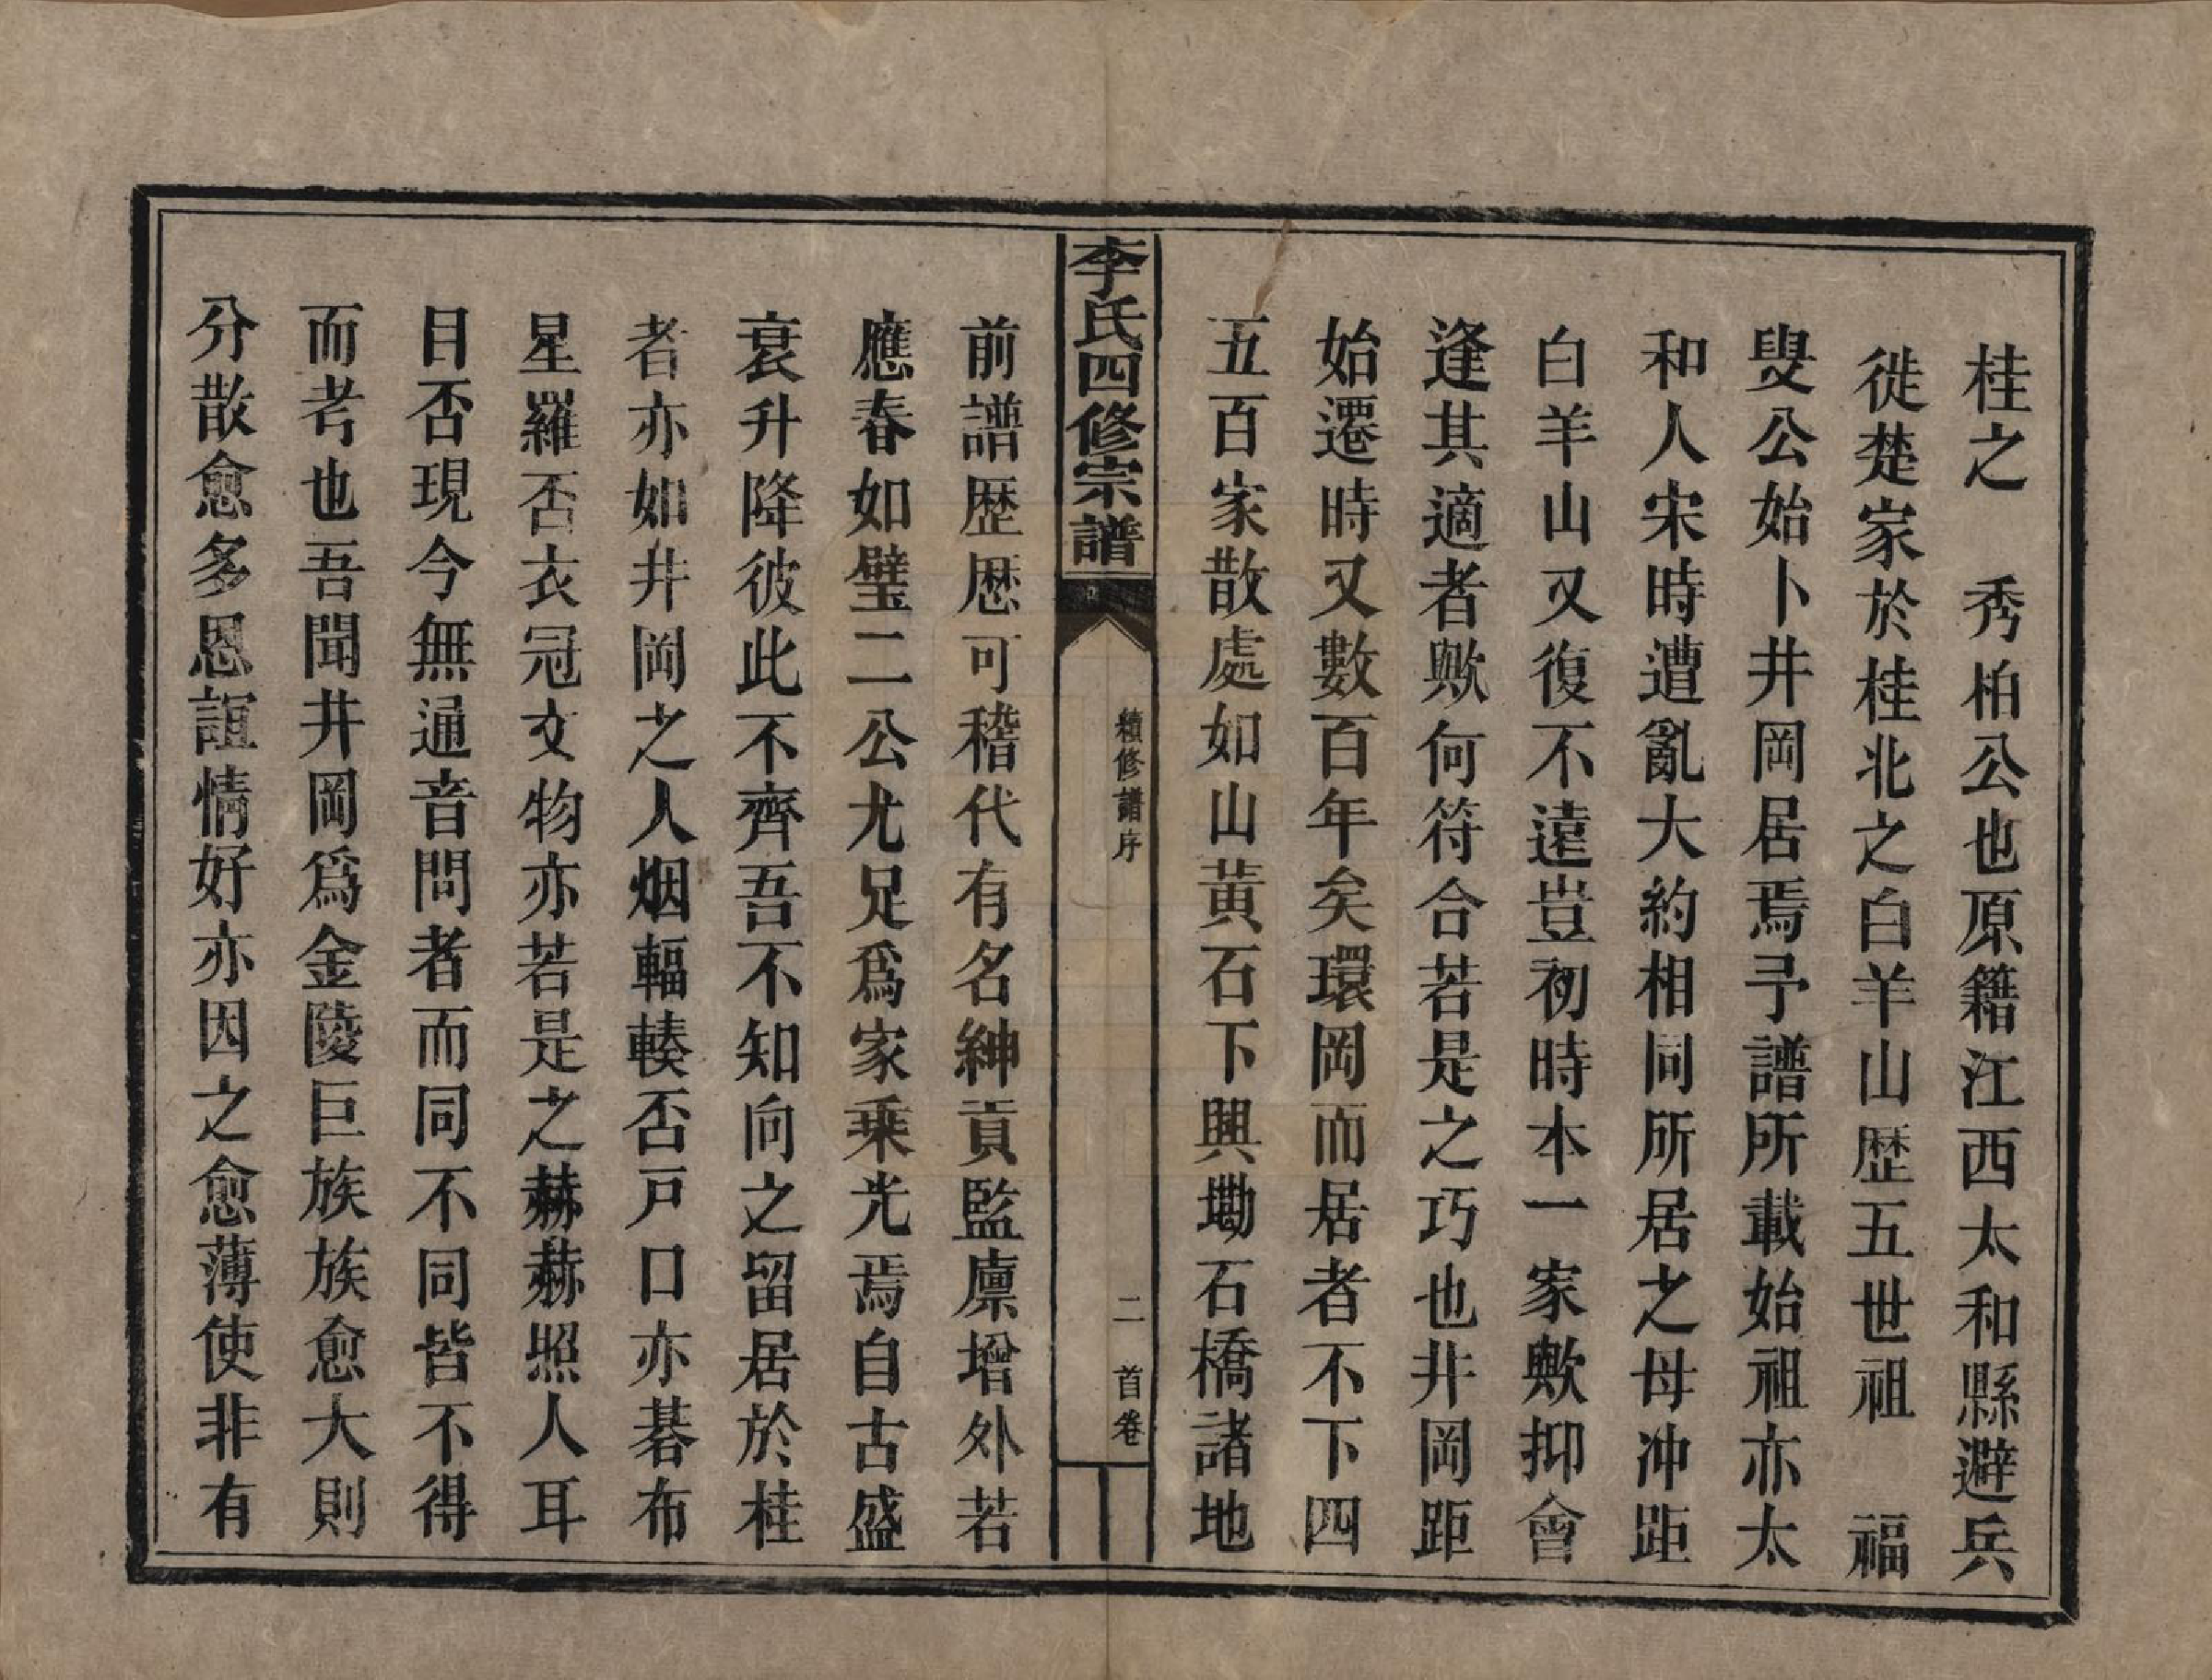 桂之　秀柏公也原籍江西太和縣避兵
徙楚家於桂北之白羊山歷五世祖　福
叟公始卜井岡居焉予譜所載始祖亦太
和人宋時遭亂大約相同所居之母冲距
白羊山又復不遠豈初時本一家歟抑會
逢其適者歟何符合若是之巧也井岡距
始遷時又數百年矣環岡而居者不下四
五百家散處如山黃石下興㘭石橋諸地
李氏四修宗譜
續修譜序
二　首卷
前譜歷歷可稽代有名紳貢監廪增外若
應春如璧二公尤足爲家乗光焉自古盛
衰升降彼此不齊吾不知向之留居於桂
者亦如井岡之人烟輻輳否戸口亦碁布
星羅否衣冠文物亦若是之赫赫照人耳
目否現今無通音問者而同不同皆不得
而考也吾聞井岡爲金陵巨族族愈大則
分散愈多恩誼情好亦因之愈薄使非有